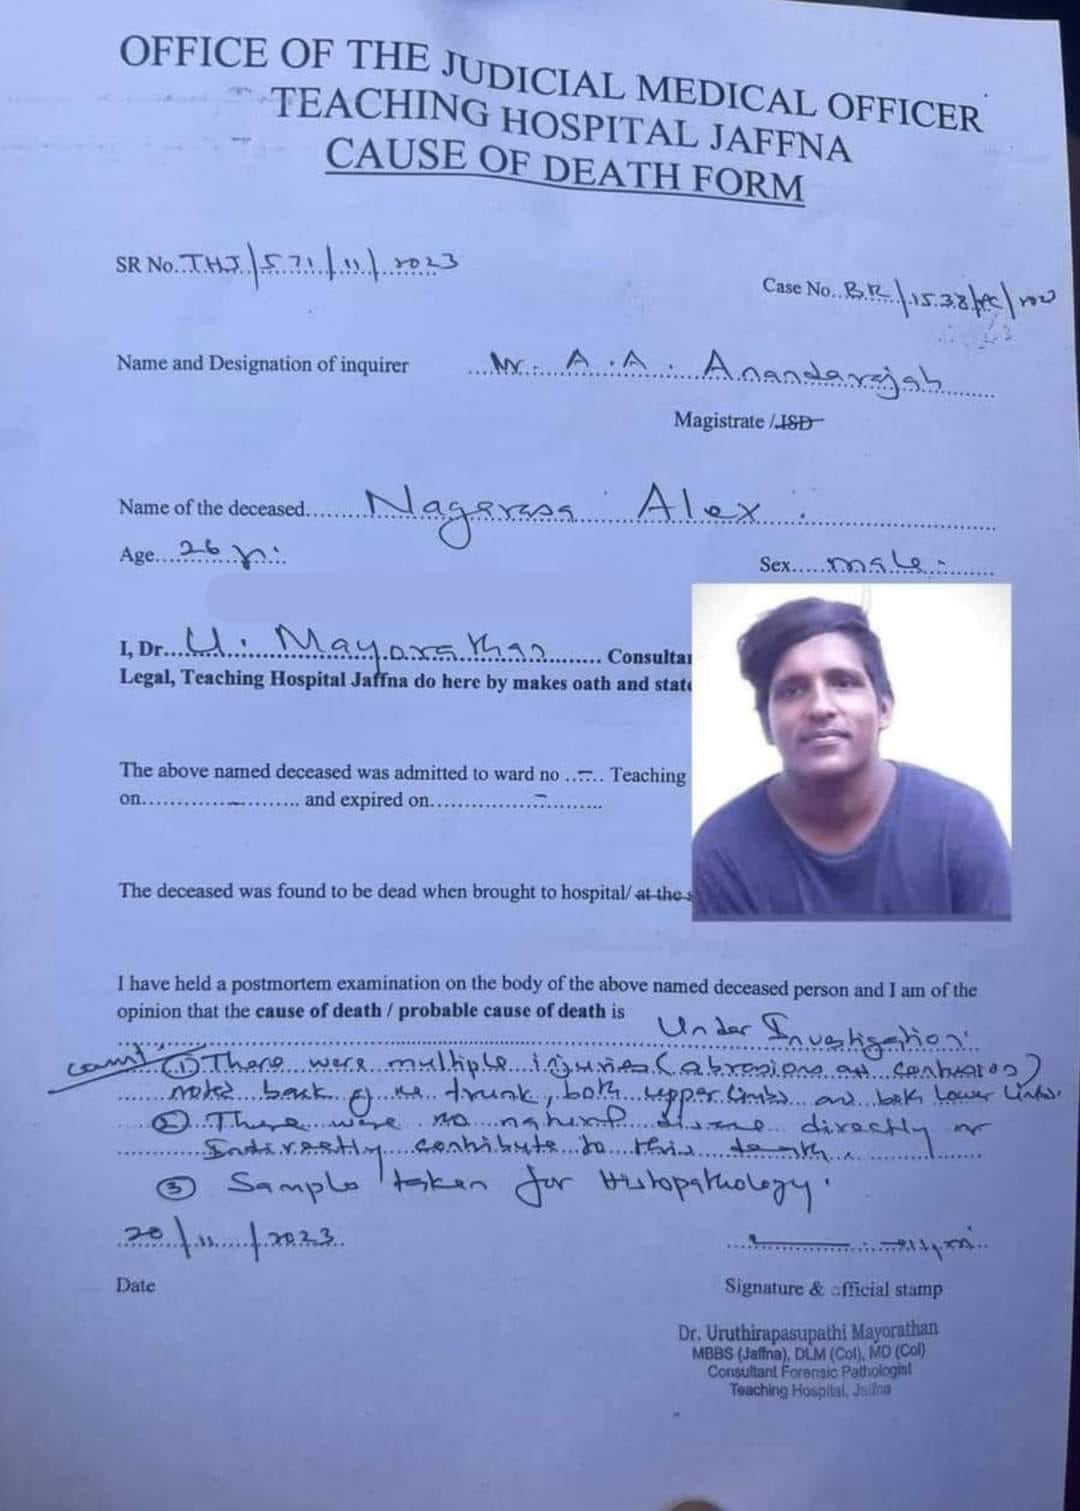 OFFICE OF THE JUDICIAL MEDICAL OFFICER
TEACHING HOSPITAL JAFFNA
CAUSE OF DEATH FORM
SR No..THJ/571/11/2023
Case No..BR/1538/PC/
Name and Designation of inquirer ...Mr. A.A. Anandarajah
Magistrate / JSD
Name of the deceased......Nagarasa Alex
Age...26
Sex.....male
I, Dr...U. Mayorathan........ Consultan
Legal, Teaching Hospital Jaffna do here by makes oath and state
The above named deceased was admitted to ward no ..-.. Teaching
on.............-......... and expired on...............-.........
The deceased was found to be dead when brought to hospital/ at the s
I have held a postmortem examination on the body of the above named deceased person and I am of the
opinion that the cause of death / probable cause of death is
Under Investigation.
① There were multiple injuries (abrasions and contusions)
noted back of the trunk, both upper limbs and both lower limbs.
② There were no natural disease directly or
Indirectly contribute to this death.
③ Samples taken for Histopathology.
20/11/2023
Date
Signature & official stamp
Dr. Uruthirapasupathi Mayorathan
MBBS (Jaffna), DLM (Col), MD (Col)
Consultant Forensic Pathologist
Teaching Hospital, Jaffna